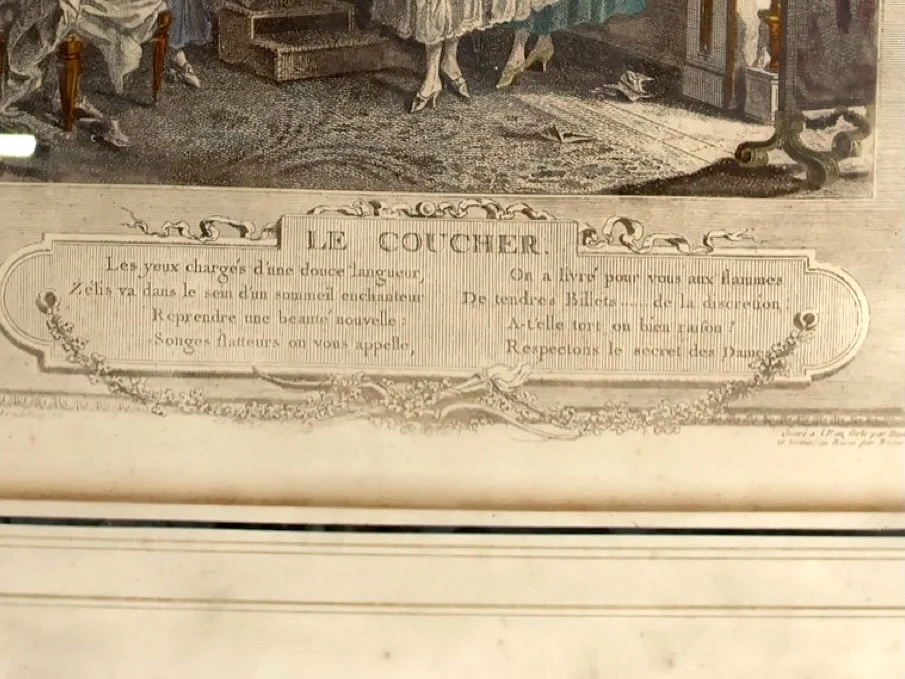 LE COUCHER.
Les yeux chargés d'une douce langueur,
Zélis va dans le sein d'un sommeil enchanteur
Reprendre une beauté nouvelle :
Songes flatteurs on vous appelle,
On a livré pour vous aux flammes
De tendres Billets ..... de la discretion
A-t'elle tort ou bien raison ?
Respectons le secret des Dames
Gravé à l'Eau forte par
par